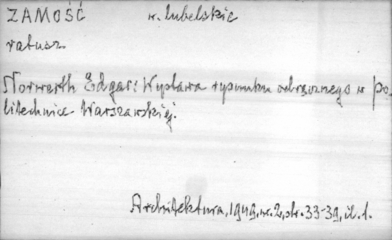 ZAMOŚĆ w. lubelskie
ratusz
Norwerth Edgar: Wystawa rysunku odręcznego w Po
litechnice Warszawskiej.
Architektura, 1949, nr. 2, str. 33-39, il. 1.